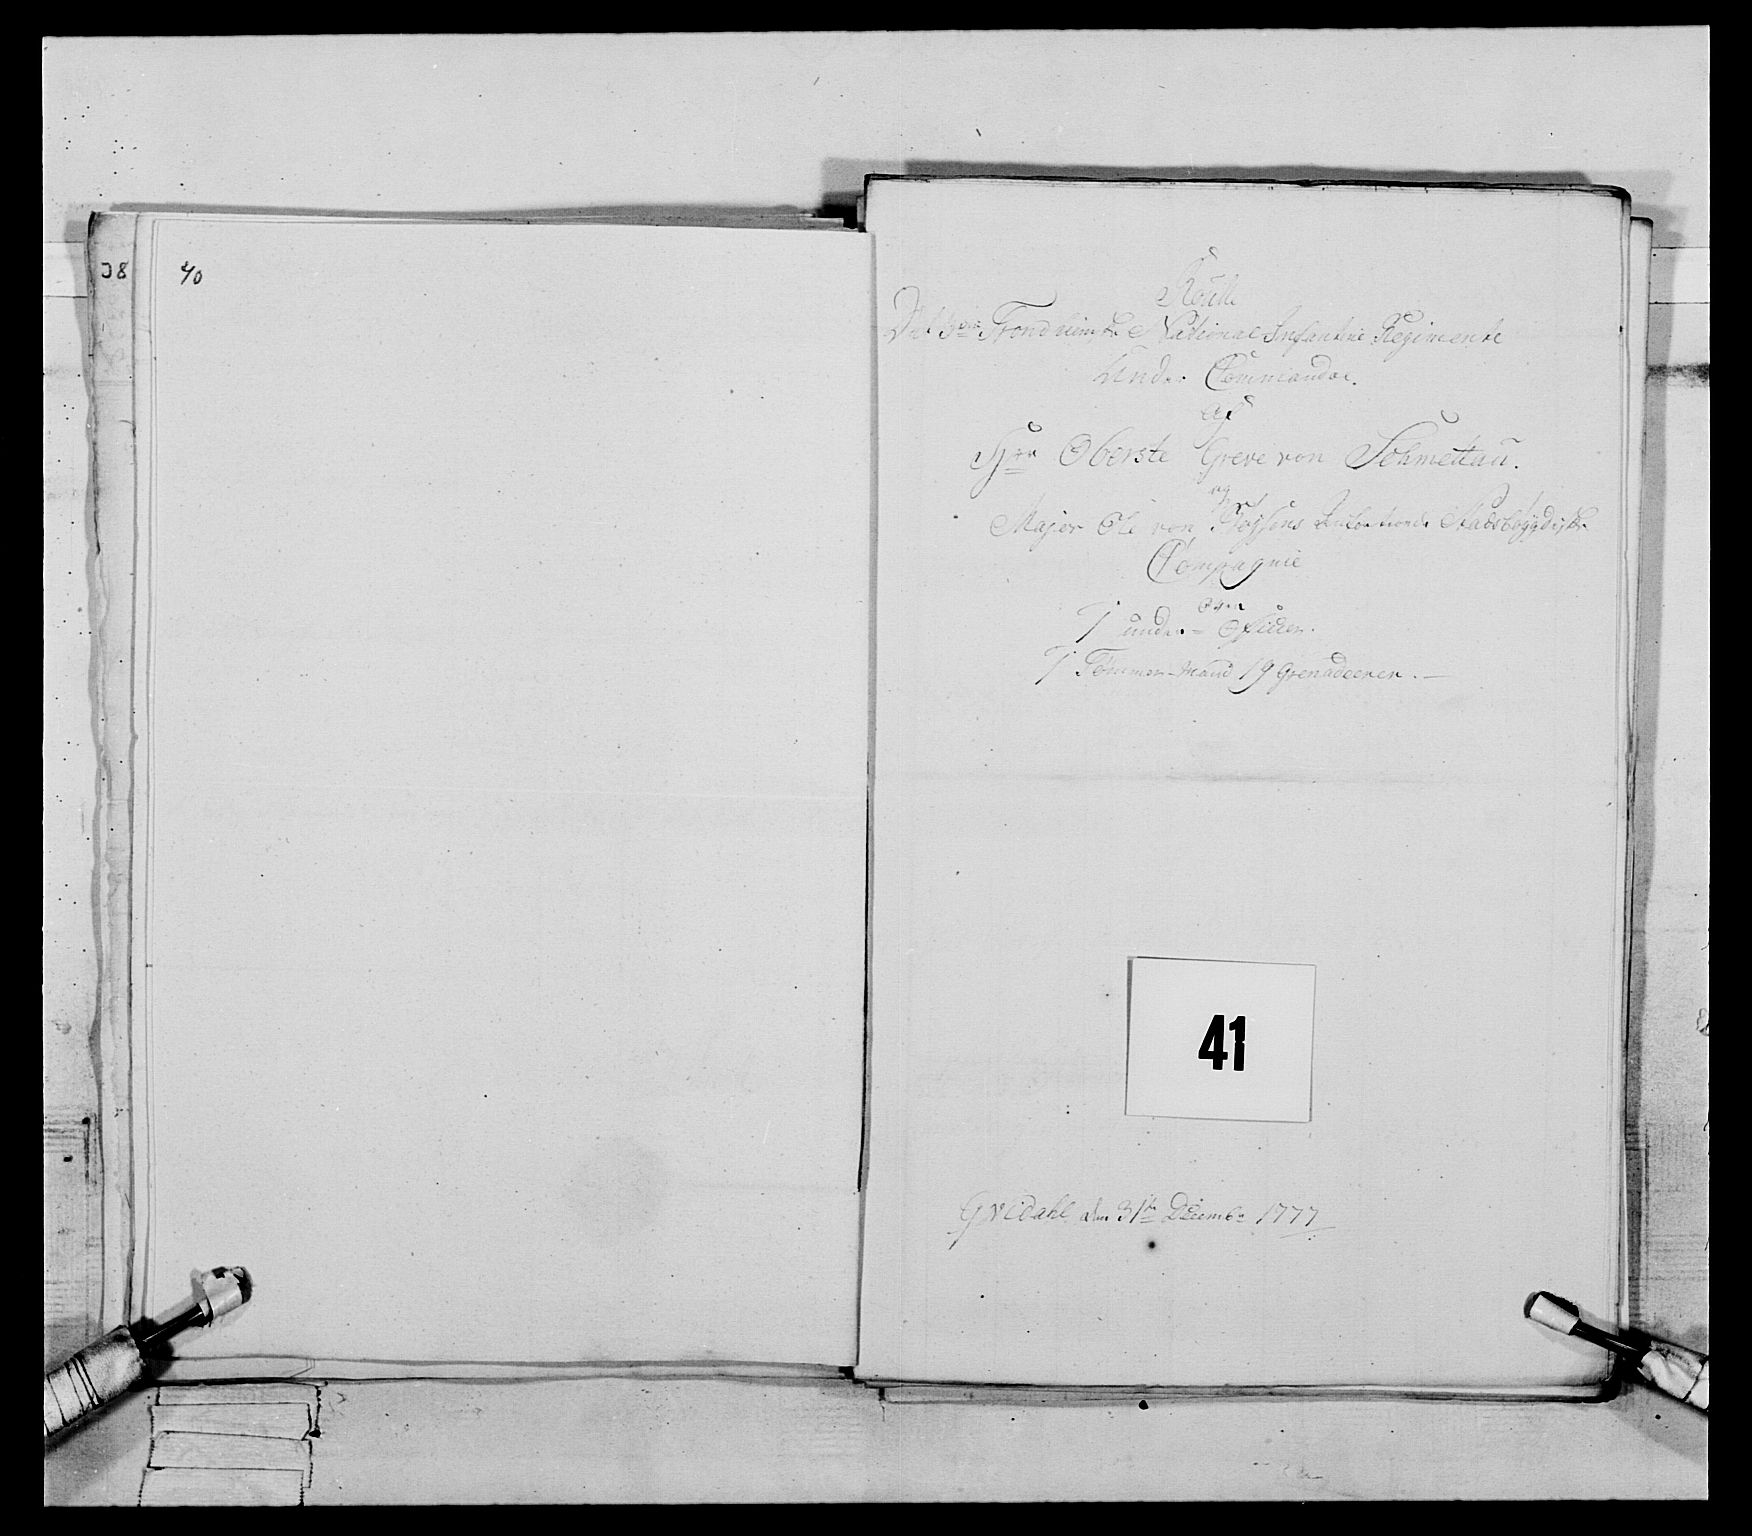 38
40
Roulle
Det 3die Trondhiemske National Infanterie Regimente
Under Commandoe.
Af
Hrr Oberste Greve von Schmettau.
og
Major Ole von Stadsbøygdiske
Compagnie
Over
1 under-Officier.
1 Tømmer-Mand 19 Grenadeerer.-
41
den 31te Decembr 1777